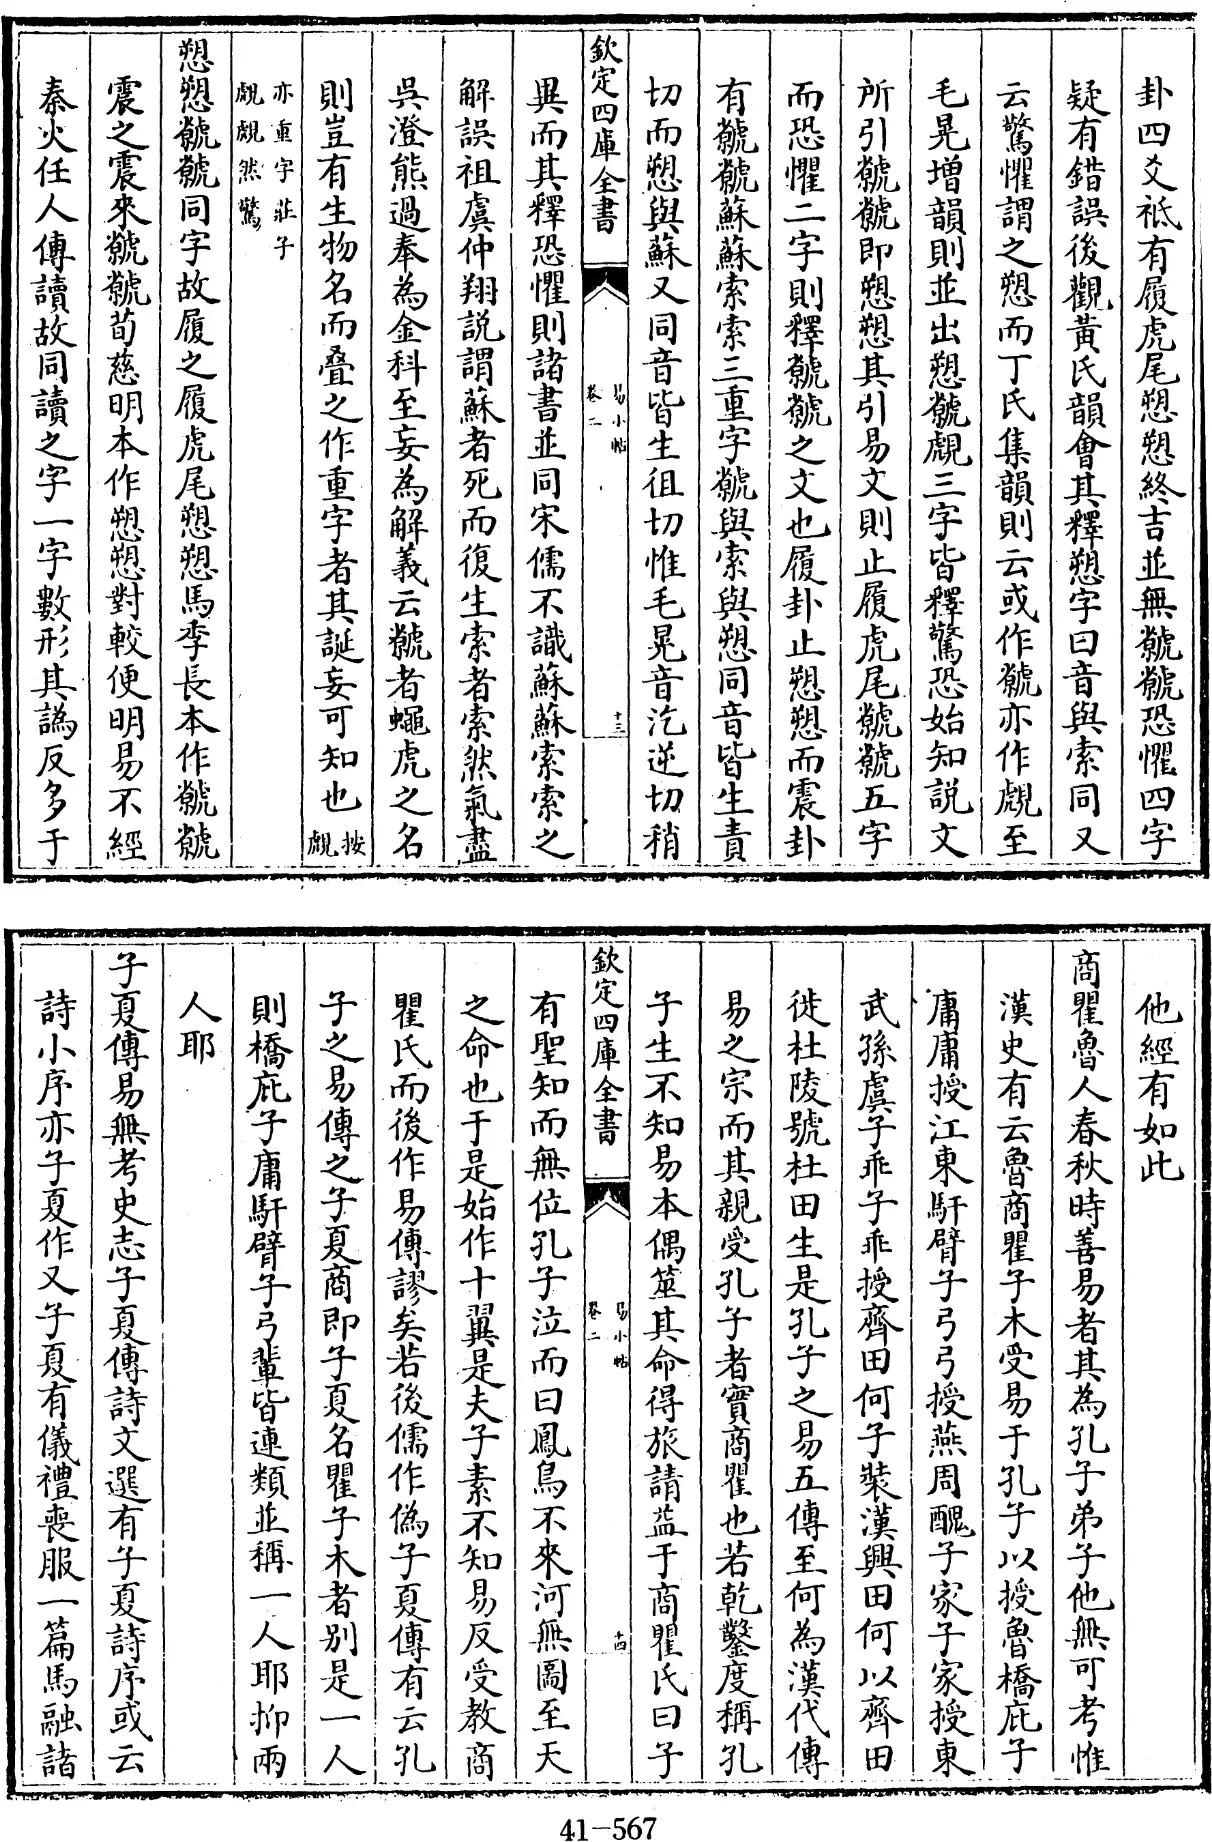 卦四爻祗有履虎尾愬愬終吉並無虩虩恐懼四字
疑有錯誤後觀黃氏韻會其釋愬字曰音與索同又
云驚懼謂之愬而丁氏集韻則云或作虩亦作覤至
毛晃增韻則並出愬虩覤三字皆釋驚恐始知説文
所引虩虩即愬愬其引易文則止履虎尾虩虩五字
而恐懼二字則釋虩虩之文也履卦止愬愬而震卦
有虩虩蘇蘇索索三重字虩與索與愬同音皆生責
切而愬與蘇又同音皆生徂切惟毛晃音汔逆切稍
欽定四庫全書
易小帖
卷二
十三
異而其釋恐懼則諸書並同宋儒不識蘇蘇索索之
解誤祖虞仲翔説謂蘇者死而復生索者索然氣盡
吳澄熊過奉為金科至妄為解義云虩者蠅虎之名
則豈有生物名而叠之作重字者其誕妄可知也按覤
亦重字莊子
覤覤然驚
愬愬虩虩同字故履之履虎尾愬愬馬季長本作虩虩
震之震來虩虩荀慈明本作愬愬對較便明易不經
秦火任人傳讀故同讀之字一字數形其譌反多于
他經有如此
商瞿魯人春秋時善易者其為孔子弟子他無可考惟
漢史有云魯商瞿子木受易于孔子以授魯橋庇子
庸庸授江東馯臂子弓弓授燕周醜子家子家授東
武孫虞子乖子乖授齊田何子裝漢興田何以齊田
徙杜陵號杜田生是孔子之易五傳至何為漢代傳
易之宗而其親受孔子者實商瞿也若乾鑿度稱孔
子生不知易本偶筮其命得旅請益于商瞿氏曰子
欽定四庫全書
易小帖
卷二
十四
有聖知而無位孔子泣而曰鳳鳥不來河無圖至天
之命也于是始作十翼是夫子素不知易反受教商
瞿氏而後作易傳謬矣若後儒作偽子夏傳有云孔
子之易傳之子夏商即子夏名瞿子木者别是一人
則橋庇子庸馯臂子弓輩皆連類並稱一人耶抑兩
人耶
子夏傳易無考史志子夏傳詩文選有子夏詩序或云
詩小序亦子夏作又子夏有儀禮喪服一篇馬融諸
41-567